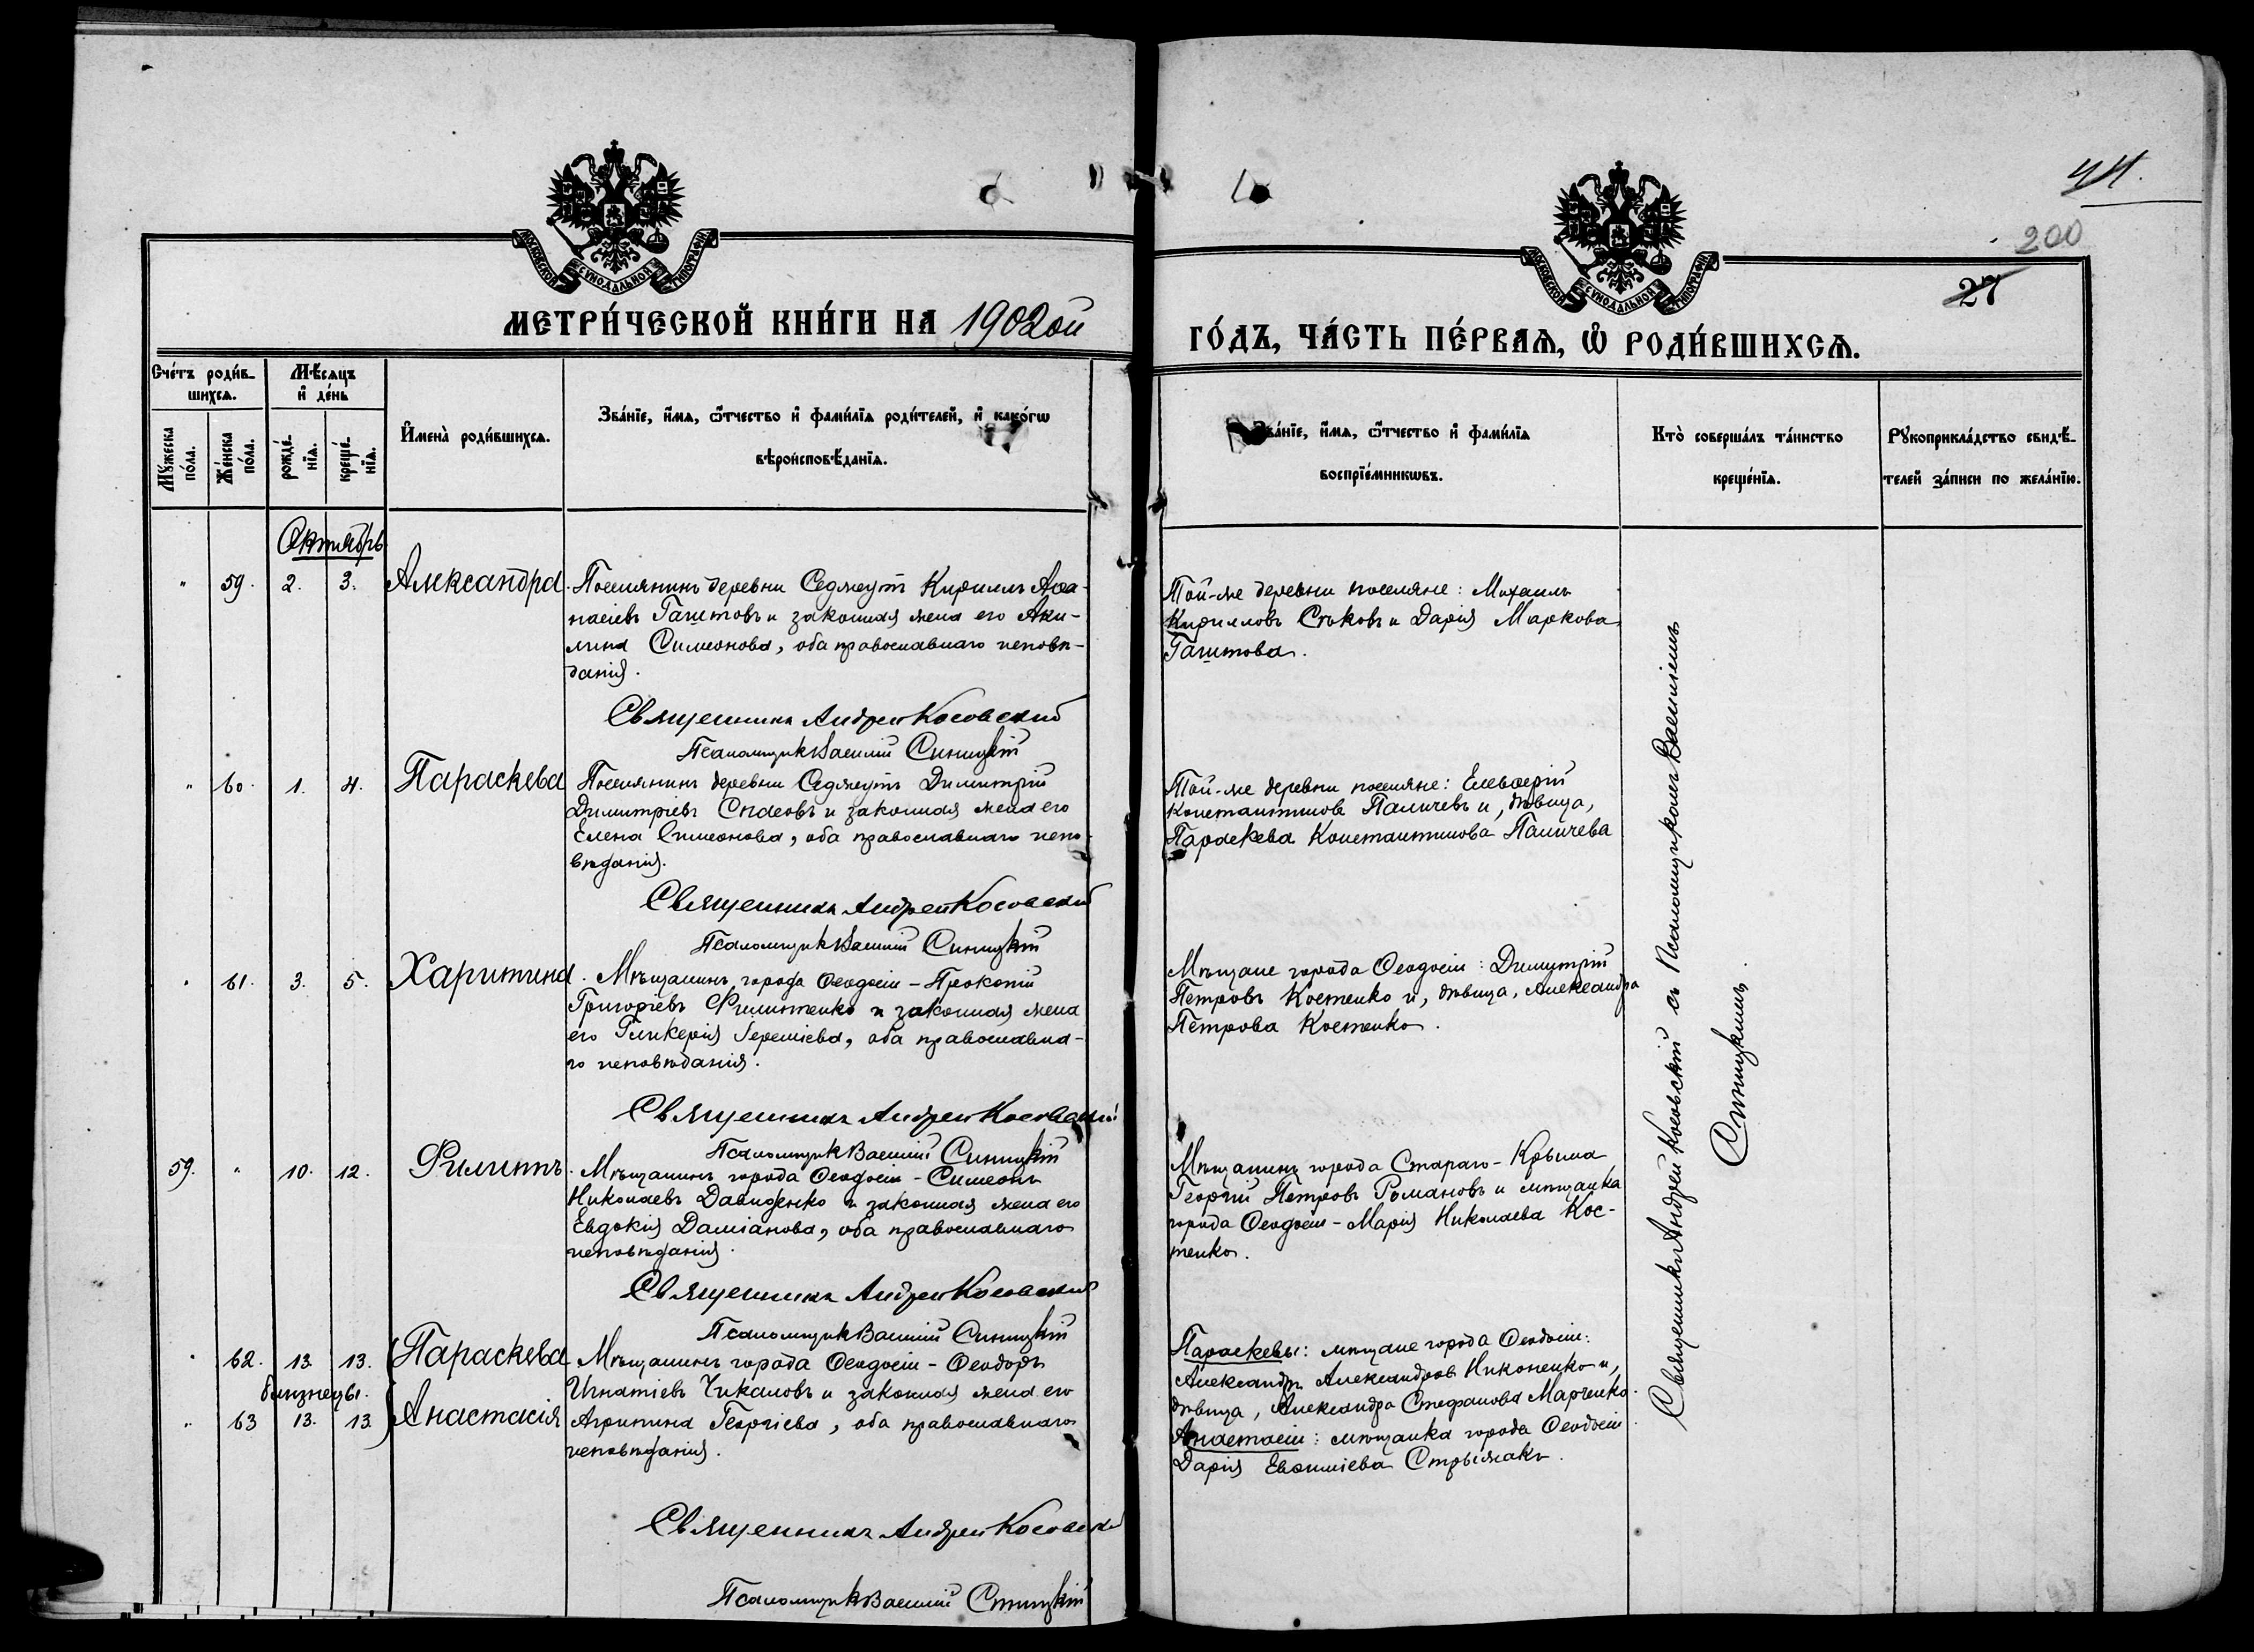 44.
200
27
МОСКОВСКОЙ СѴНОДАЛЬНОЙ ТИПОГРАФІИ
МОСКОВСКОЙ СѴНОДАЛЬНОЙ ТИПОГРАФІИ
МЕТРИ́ЧЕСКОЙ КНИ́ГИ НА 1902ой
ГО́ДЪ, ЧА́СТЬ ПЕ́РВАѦ, Ѡ҆ РОДИ́ВШИХСѦ.
Сче́тъ роди́в-
шихсѧ.
Мꙋ́жеска
по́ла.
Же́нска
по́ла.
Мѣ́сѧцъ
и҆ де́нь
рожде́-
нїѧ.
креще́-
нїѧ.
И҆мена̀ роди́вшихсѧ.
Зва́нїе, и҆́мѧ, ѻ҆́тчество и҆ фами́лїѧ роди́телей, и҆ како́гѡ
вѣроисповѣ́данїѧ.
Зва́нїе, и҆́мѧ, ѻ҆́тчество и҆ фами́лїѧ
воспрїе́мникѡвъ.
Кто̀ соверша́лъ та́инство
креще́нїѧ.
Рꙋкоприкла́дство свидѣ́-
телей за́писи по жела́нїю.
Октябрь
" 59. 2. 3. Александра.
Поселянинъ деревни Седжеут Кирилъ Аѳа-
насіевъ Гаштовъ и законная жена его Аки-
лина Симеонова, оба православнаго исповѣ-
данія.
Священникъ Андрей Косовский
Псаломщик Василій Синицкій
Той-же деревни поселяне: Михаилъ
Кирилловъ Стоковъ и Дарія Маркова
Гаштова.
" 60. 1. 4. Параскева
Поселянинъ деревни Седжеутъ Димитрій
Димитріевъ Спасовъ и законная жена его
Елена Симеонова, оба православнаго испо-
вѣданія.
Священникъ Андрей Косовский
Псаломщик Василій Синицкій
Той-же деревни поселяне: Елевѳерій
Константиновъ Паличевъ и, дѣвица,
Параскева Константинова Паличева
" 61. 3. 5. Харитина.
Мѣщанинъ города Ѳеодосіи - Прокопій
Григоріевъ Филипенко и законная жена
его Гликерія Іереміева, оба православна-
го исповѣданія.
Священникъ Андрей Косовский
Псаломщик Василій Синицкій
Мѣщане города Ѳеодосіи: Димитрій
Петровъ Костенко и, дѣвица, Александра
Петрова Костенко.
59. " 10. 12. Филиппъ.
Мѣщанинъ города Ѳеодосіи - Симеонъ
Николаевъ Давиденко и законная жена его
Евдокія Даміанова, оба православнаго
исповѣданія.
Священникъ Андрей Косовский
Псаломщик Василій Синицкій
Мѣщанинъ города Стараго-Крыма
Георгій Петровъ Романовъ и мѣщанка
города Ѳеодосіи - Марія Николаева Кос-
тенко.
" 62. 13. 13. Параскева
близнецы.
" 63 13. 13 Анастасія
Мѣщанинъ города Ѳеодосіи - Ѳеодоръ
Игнатіевъ Чикаловъ и законная жена его
Агрипина Георгіева, оба православнаго
исповѣданія.
Священникъ Андрей Косовский
Псаломщик Василій Синицкій
Параскевы: мѣщане города Ѳеодосіи:
Александръ Александровъ Никоненко и,
дѣвица, Александра Стефанова Марченко.
Анастасіи: мѣщанка города Ѳеодосіи
Дарія Евѳиміева Стрыжакъ.
Священникъ Андрей Косовскій съ Псаломщикомъ Василіемъ
Синицкимъ.